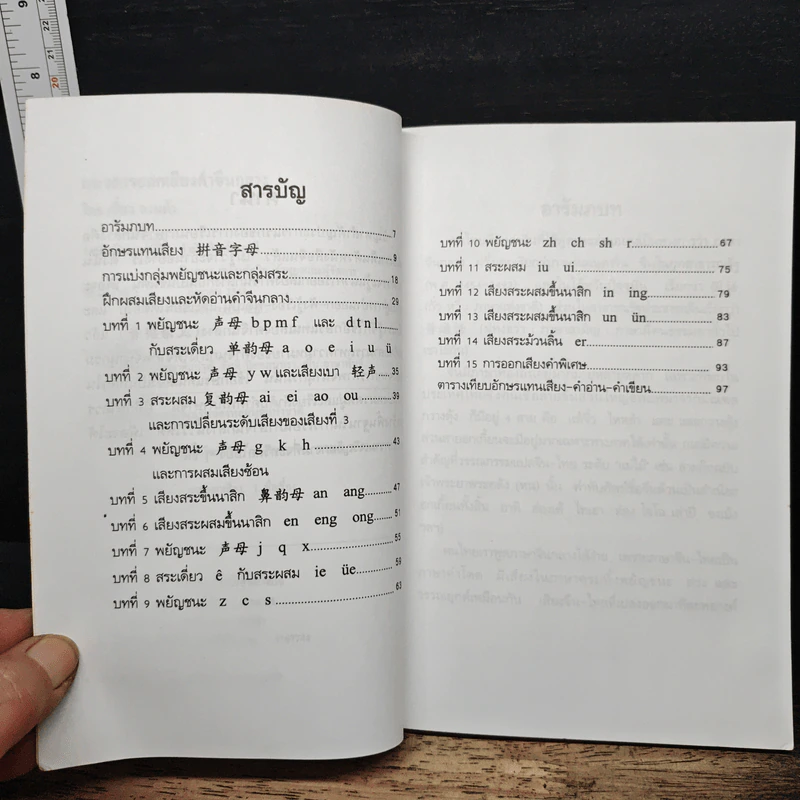 สารบัญ
อารัมภบท........7
อักษรแทนเสียง 拼音字母........9
การแบ่งกลุ่มพยัญชนะและกลุ่มสระ........18
ฝึกผสมเสียงและหัดอ่านคำจีนกลาง........29
บทที่ 1 พยัญชนะ 声母 b p m f และ d t n l........
กับสระเดี่ยว 单韵母 a o e i u ü
บทที่ 2 พยัญชนะ 声母 y w และเสียงเบา 轻声........35
บทที่ 3 สระผสม 复韵母 ai ei ao ou........39
และการเปลี่ยนระดับเสียงของเสียงที่ 3
บทที่ 4 พยัญชนะ 声母 g k h........43
และการผสมเสียงซ้อน
บทที่ 5 เสียงสระขึ้นนาสิก 鼻韵母 an ang........47
บทที่ 6 เสียงสระผสมขึ้นนาสิก en eng ong........51
บทที่ 7 พยัญชนะ 声母 j q x........55
บทที่ 8 สระเดี่ยว ê กับสระผสม ie üe........59
บทที่ 9 พยัญชนะ z c s........63
บทที่ 10 พยัญชนะ zh ch sh r........67
บทที่ 11 สระผสม iu ui........75
บทที่ 12 เสียงสระผสมขึ้นนาสิก in ing........79
บทที่ 13 เสียงสระผสมขึ้นนาสิก un ün........83
บทที่ 14 เสียงสระม้วนลิ้น er........87
บทที่ 15 การออกเสียงคำพิเศษ........93
ตารางเทียบอักษรแทนเสียง-คำอ่าน-คำเขียน........97
9
8
22
21
20